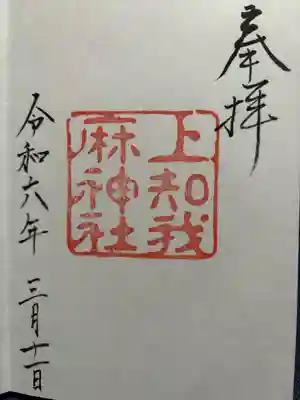 奉拝
上知我
麻神社
令和六年 三月十一日